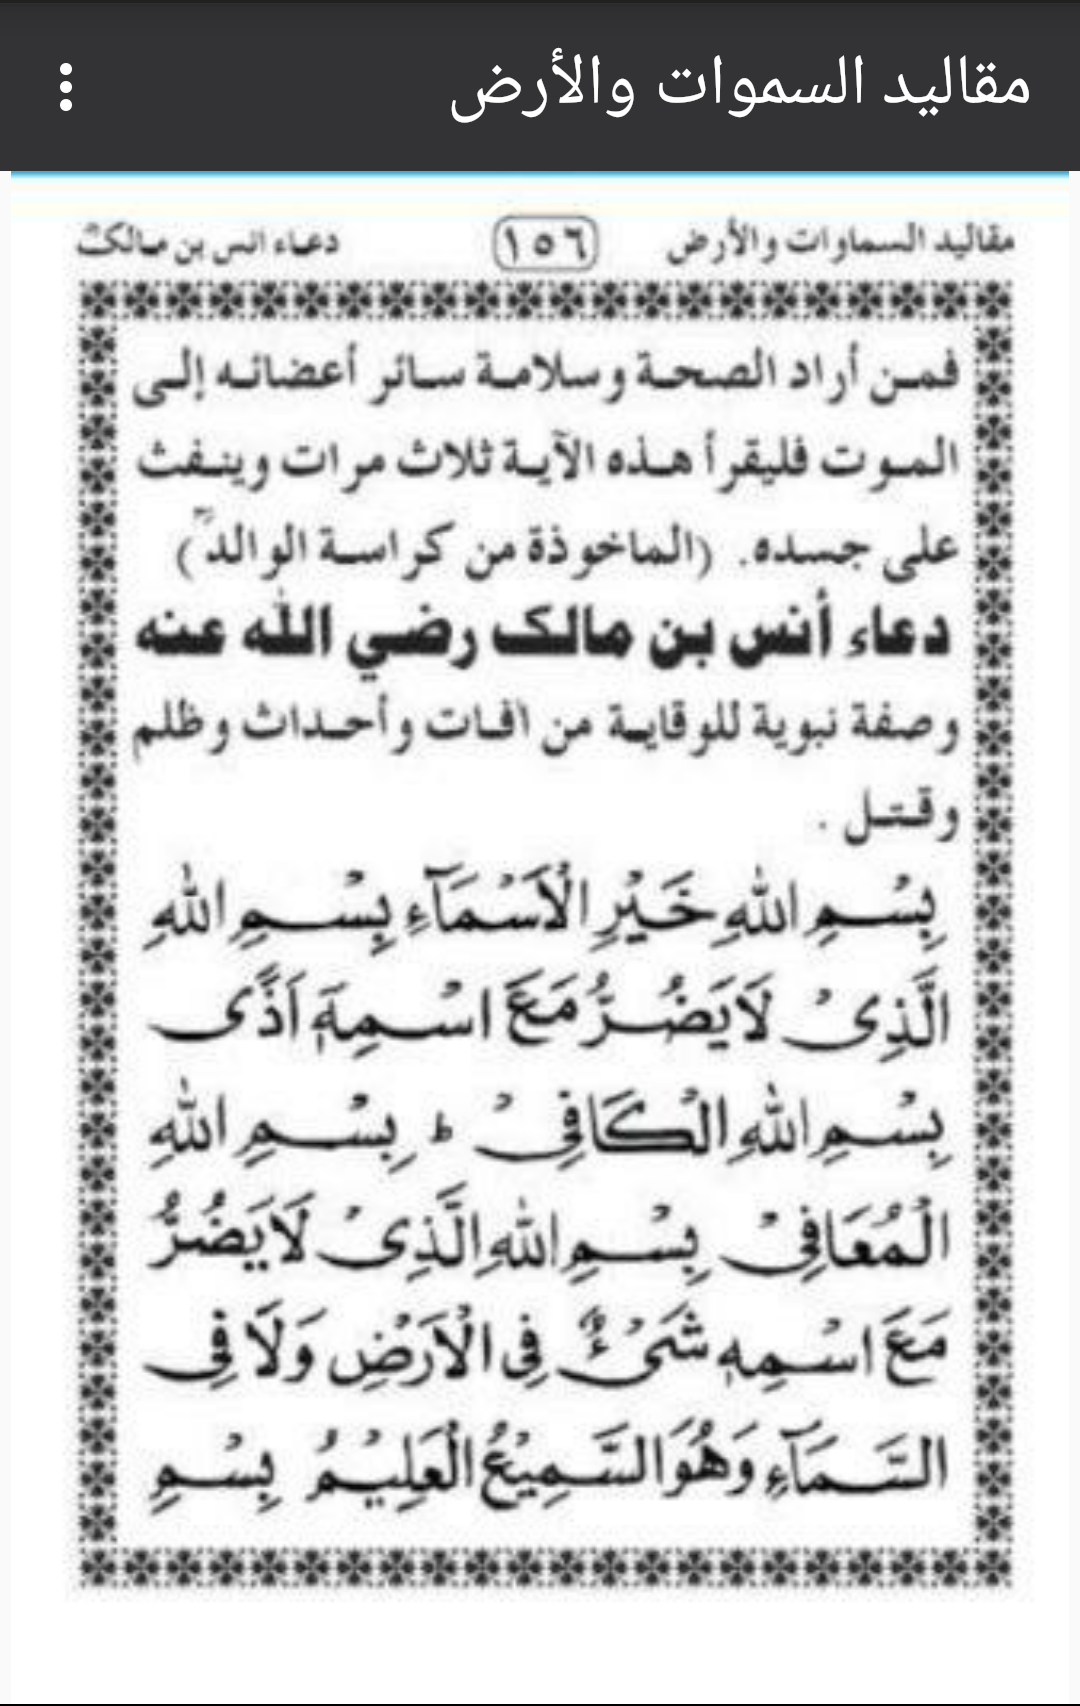 مقاليد السموات والأرض
مقاليد السماوات والأرض ١٥٦ دعاء انس بن مالكؓ
فمن أراد الصحة وسلامة سائر أعضائه إلى
الموت فليقرأ هذه الآية ثلاث مرات وينفث
على جسده. (الماخوذة من كراسة الوالدؒ)
دعاء أنس بن مالك رضي الله عنه
وصفة نبوية للوقاية من افات وأحداث وظلم
وقتل .
بِسْمِ اللهِ خَيْرِ الْاَسْمَآءِ بِسْمِ اللهِ
الَّذِىْ لَا يَضُرُّ مَعَ اسْمِهٖٓ اَذًى
بِسْمِ اللهِ الْكَافِىْ ط بِسْمِ اللهِ
الْمُعَافِىْ بِسْمِ اللهِ الَّذِىْ لَا يَضُرُّ
مَعَ اسْمِهٖ شَىْءٌ فِى الْاَرْضِ وَلَا فِى
السَّمَآءِ وَهُوَ السَّمِيْعُ الْعَلِيْمُ بِسْمِ